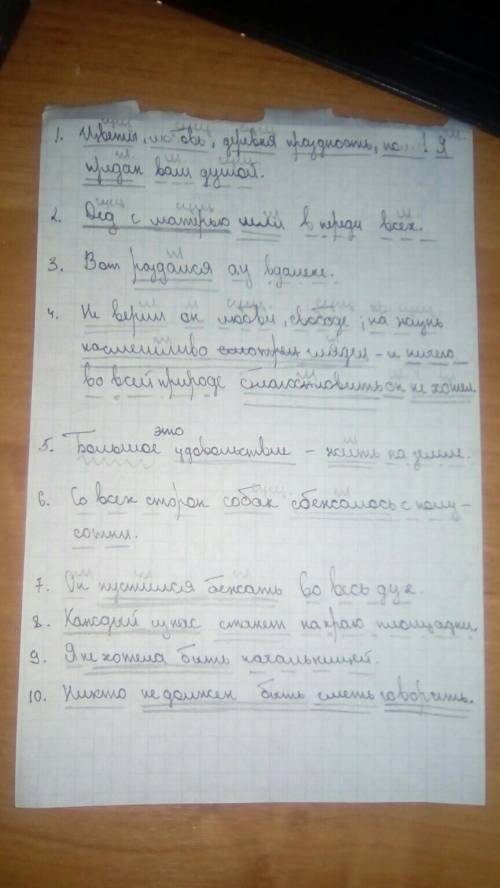 1. Цветы, любовь, деревня праздность, по...! Я
предан вам душой.
2. Дед с матерью шли в переди всех.
3. Вот раздался ау вдалеке.
4. Не верил он любви, свободе, на жизнь
насмешливо смотрел глядел - и ничего
во всей природе благословить он не хотел.
это
5. Большое удовольствие - жить на земле.
6. Со всех сторон собак сбежалось с полу-
сотни.
7. Он пустился бежать во весь дух.
8. Каждый из нас станет на краю площадки
9. Я не хотела быть начальницей.
10. Никто не должен быть сметь говорить.